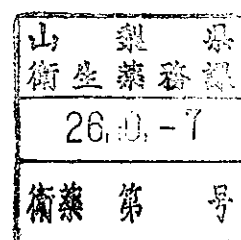 山梨県
衛生薬務課
26. -7
衛薬第 号